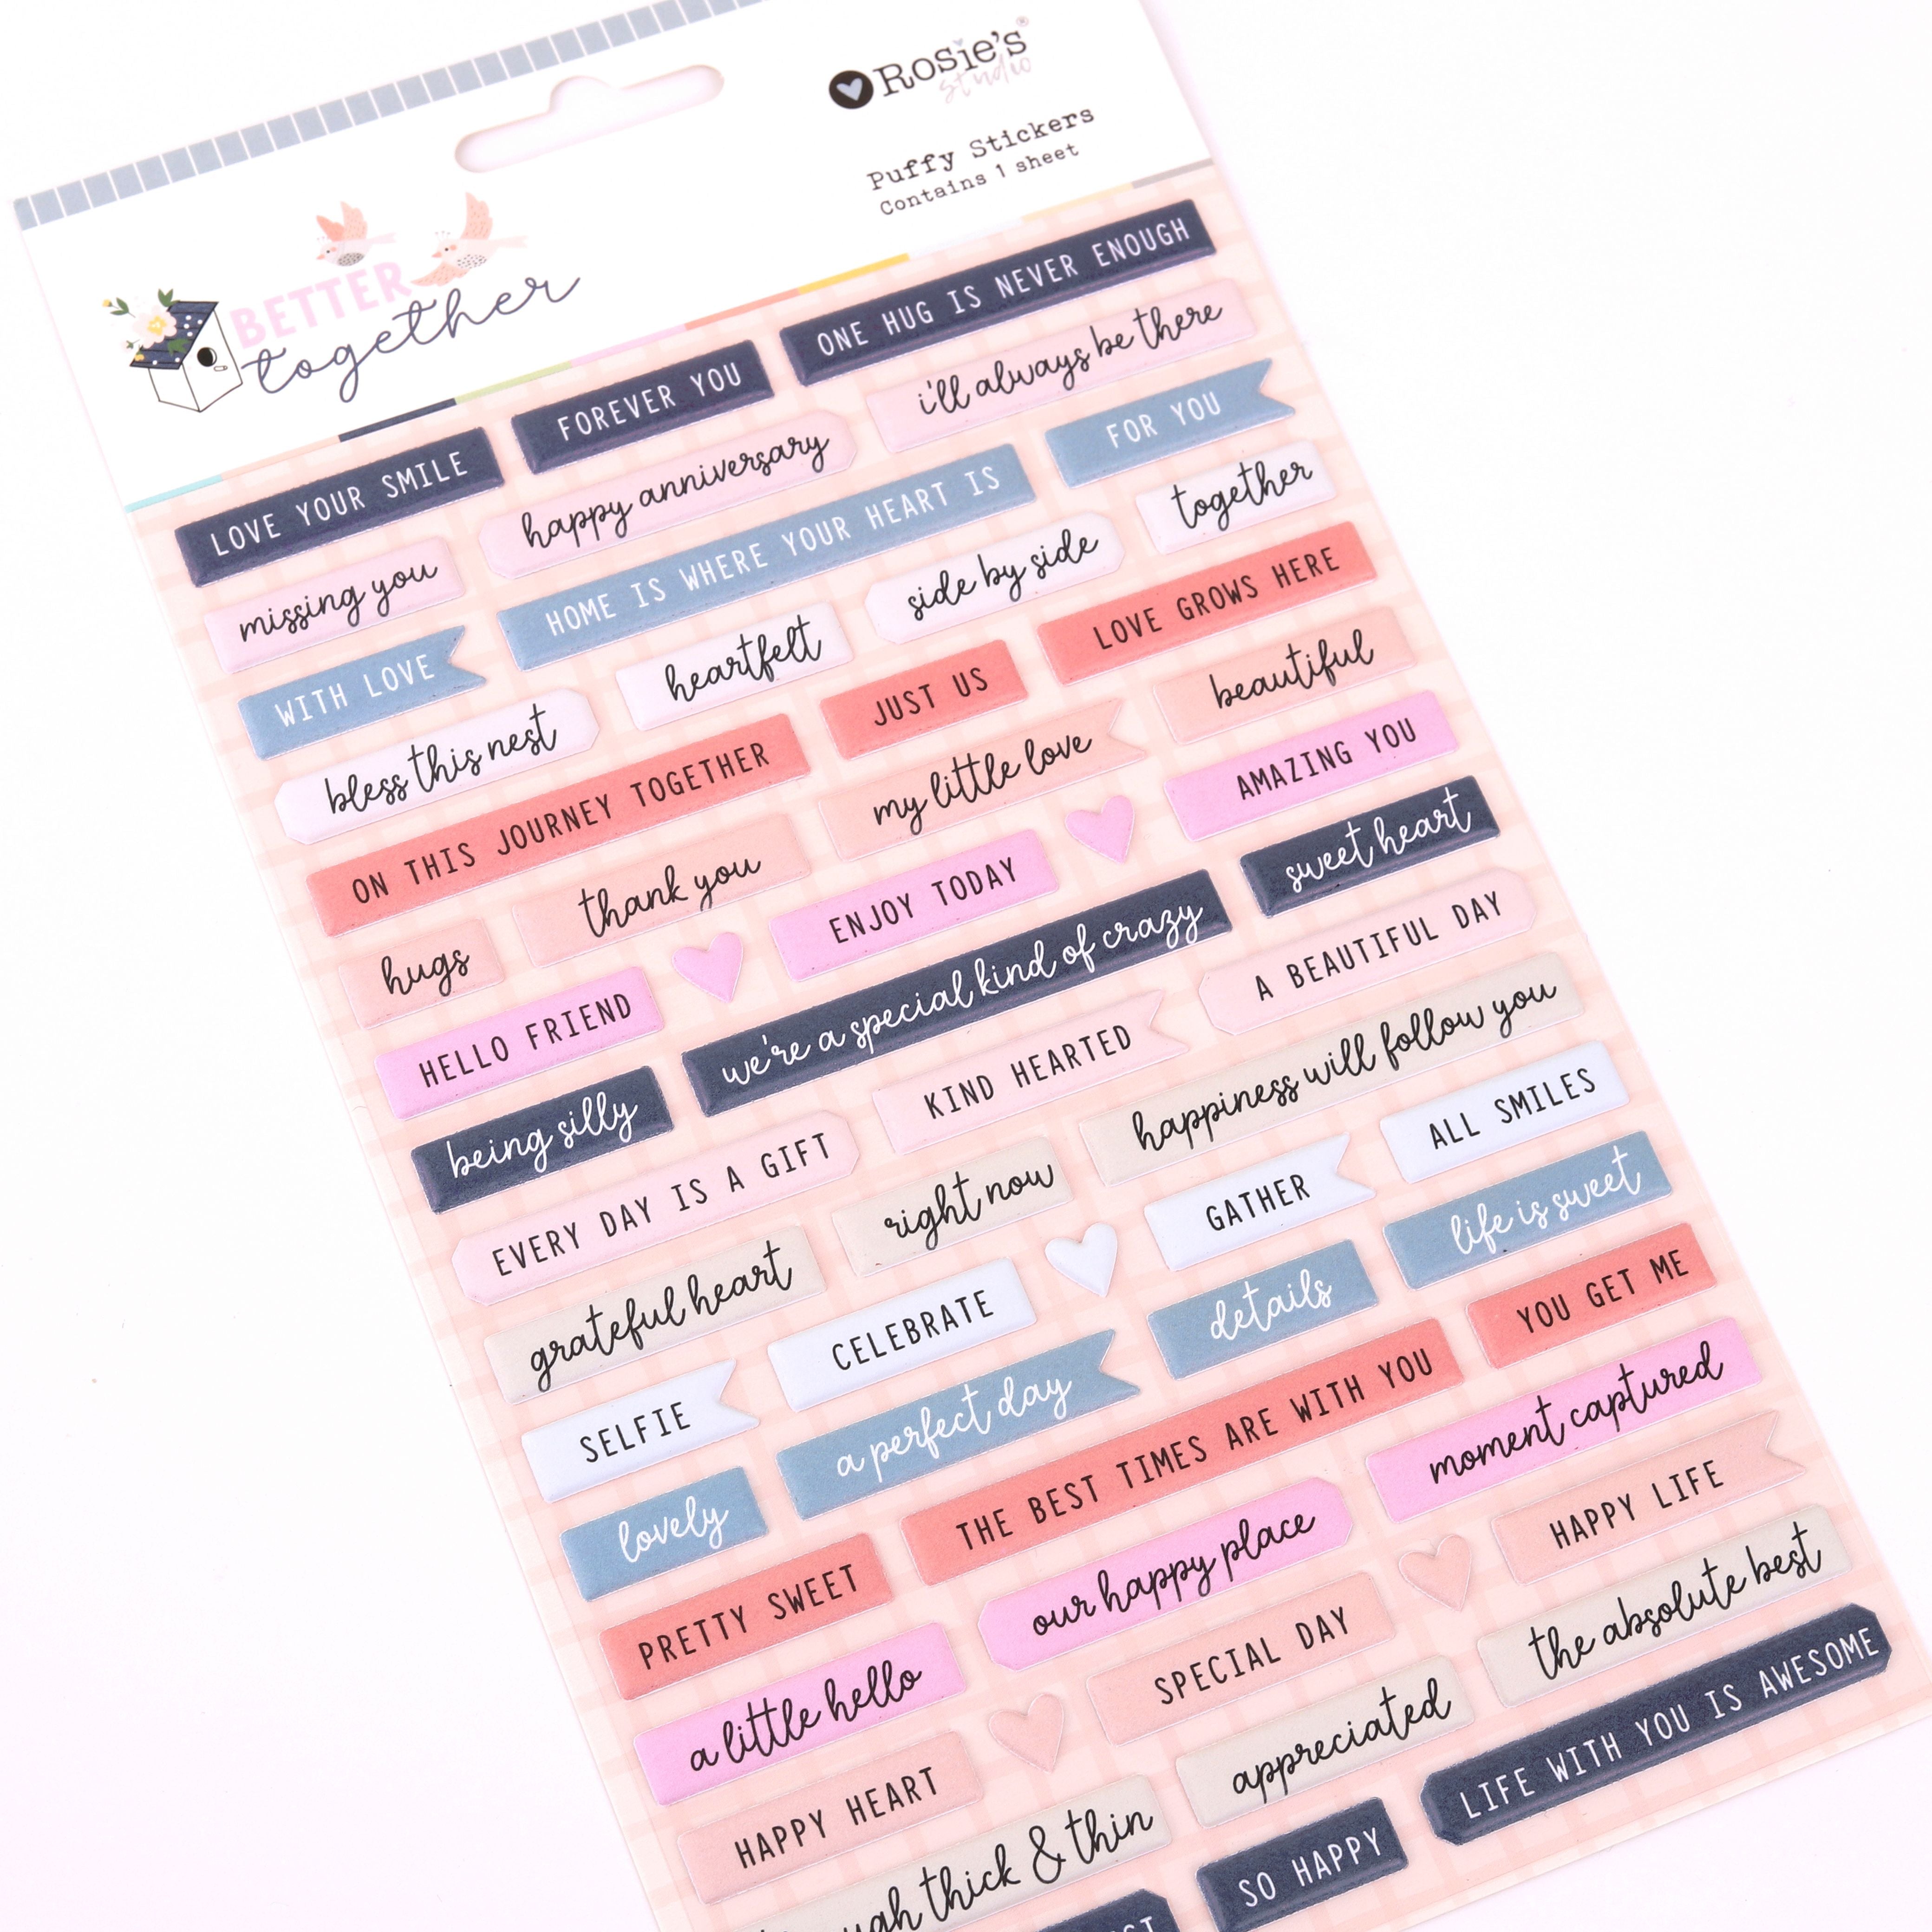 Rosie's
studio
Puffy Stickers
Contains 1 sheet
BETTER
together
LOVE YOUR SMILE
FOREVER YOU
ONE HUG IS NEVER ENOUGH
missing you
happy anniversary
i'll always be there
WITH LOVE
HOME IS WHERE YOUR HEART IS
FOR YOU
bless this nest
heartfelt
side by side
together
ON THIS JOURNEY TOGETHER
JUST US
LOVE GROWS HERE
hugs
thank you
my little love
beautiful
HELLO FRIEND
ENJOY TODAY
AMAZING YOU
being silly
we're a special kind of crazy
sweet heart
EVERY DAY IS A GIFT
KIND HEARTED
A BEAUTIFUL DAY
grateful heart
right now
happiness will follow you
SELFIE
CELEBRATE
GATHER
ALL SMILES
lovely
a perfect day
details
life is sweet
PRETTY SWEET
THE BEST TIMES ARE WITH YOU
YOU GET ME
a little hello
our happy place
moment captured
HAPPY HEART
SPECIAL DAY
HAPPY LIFE
thick & thin
appreciated
the absolute best
SO HAPPY
LIFE WITH YOU IS AWESOME